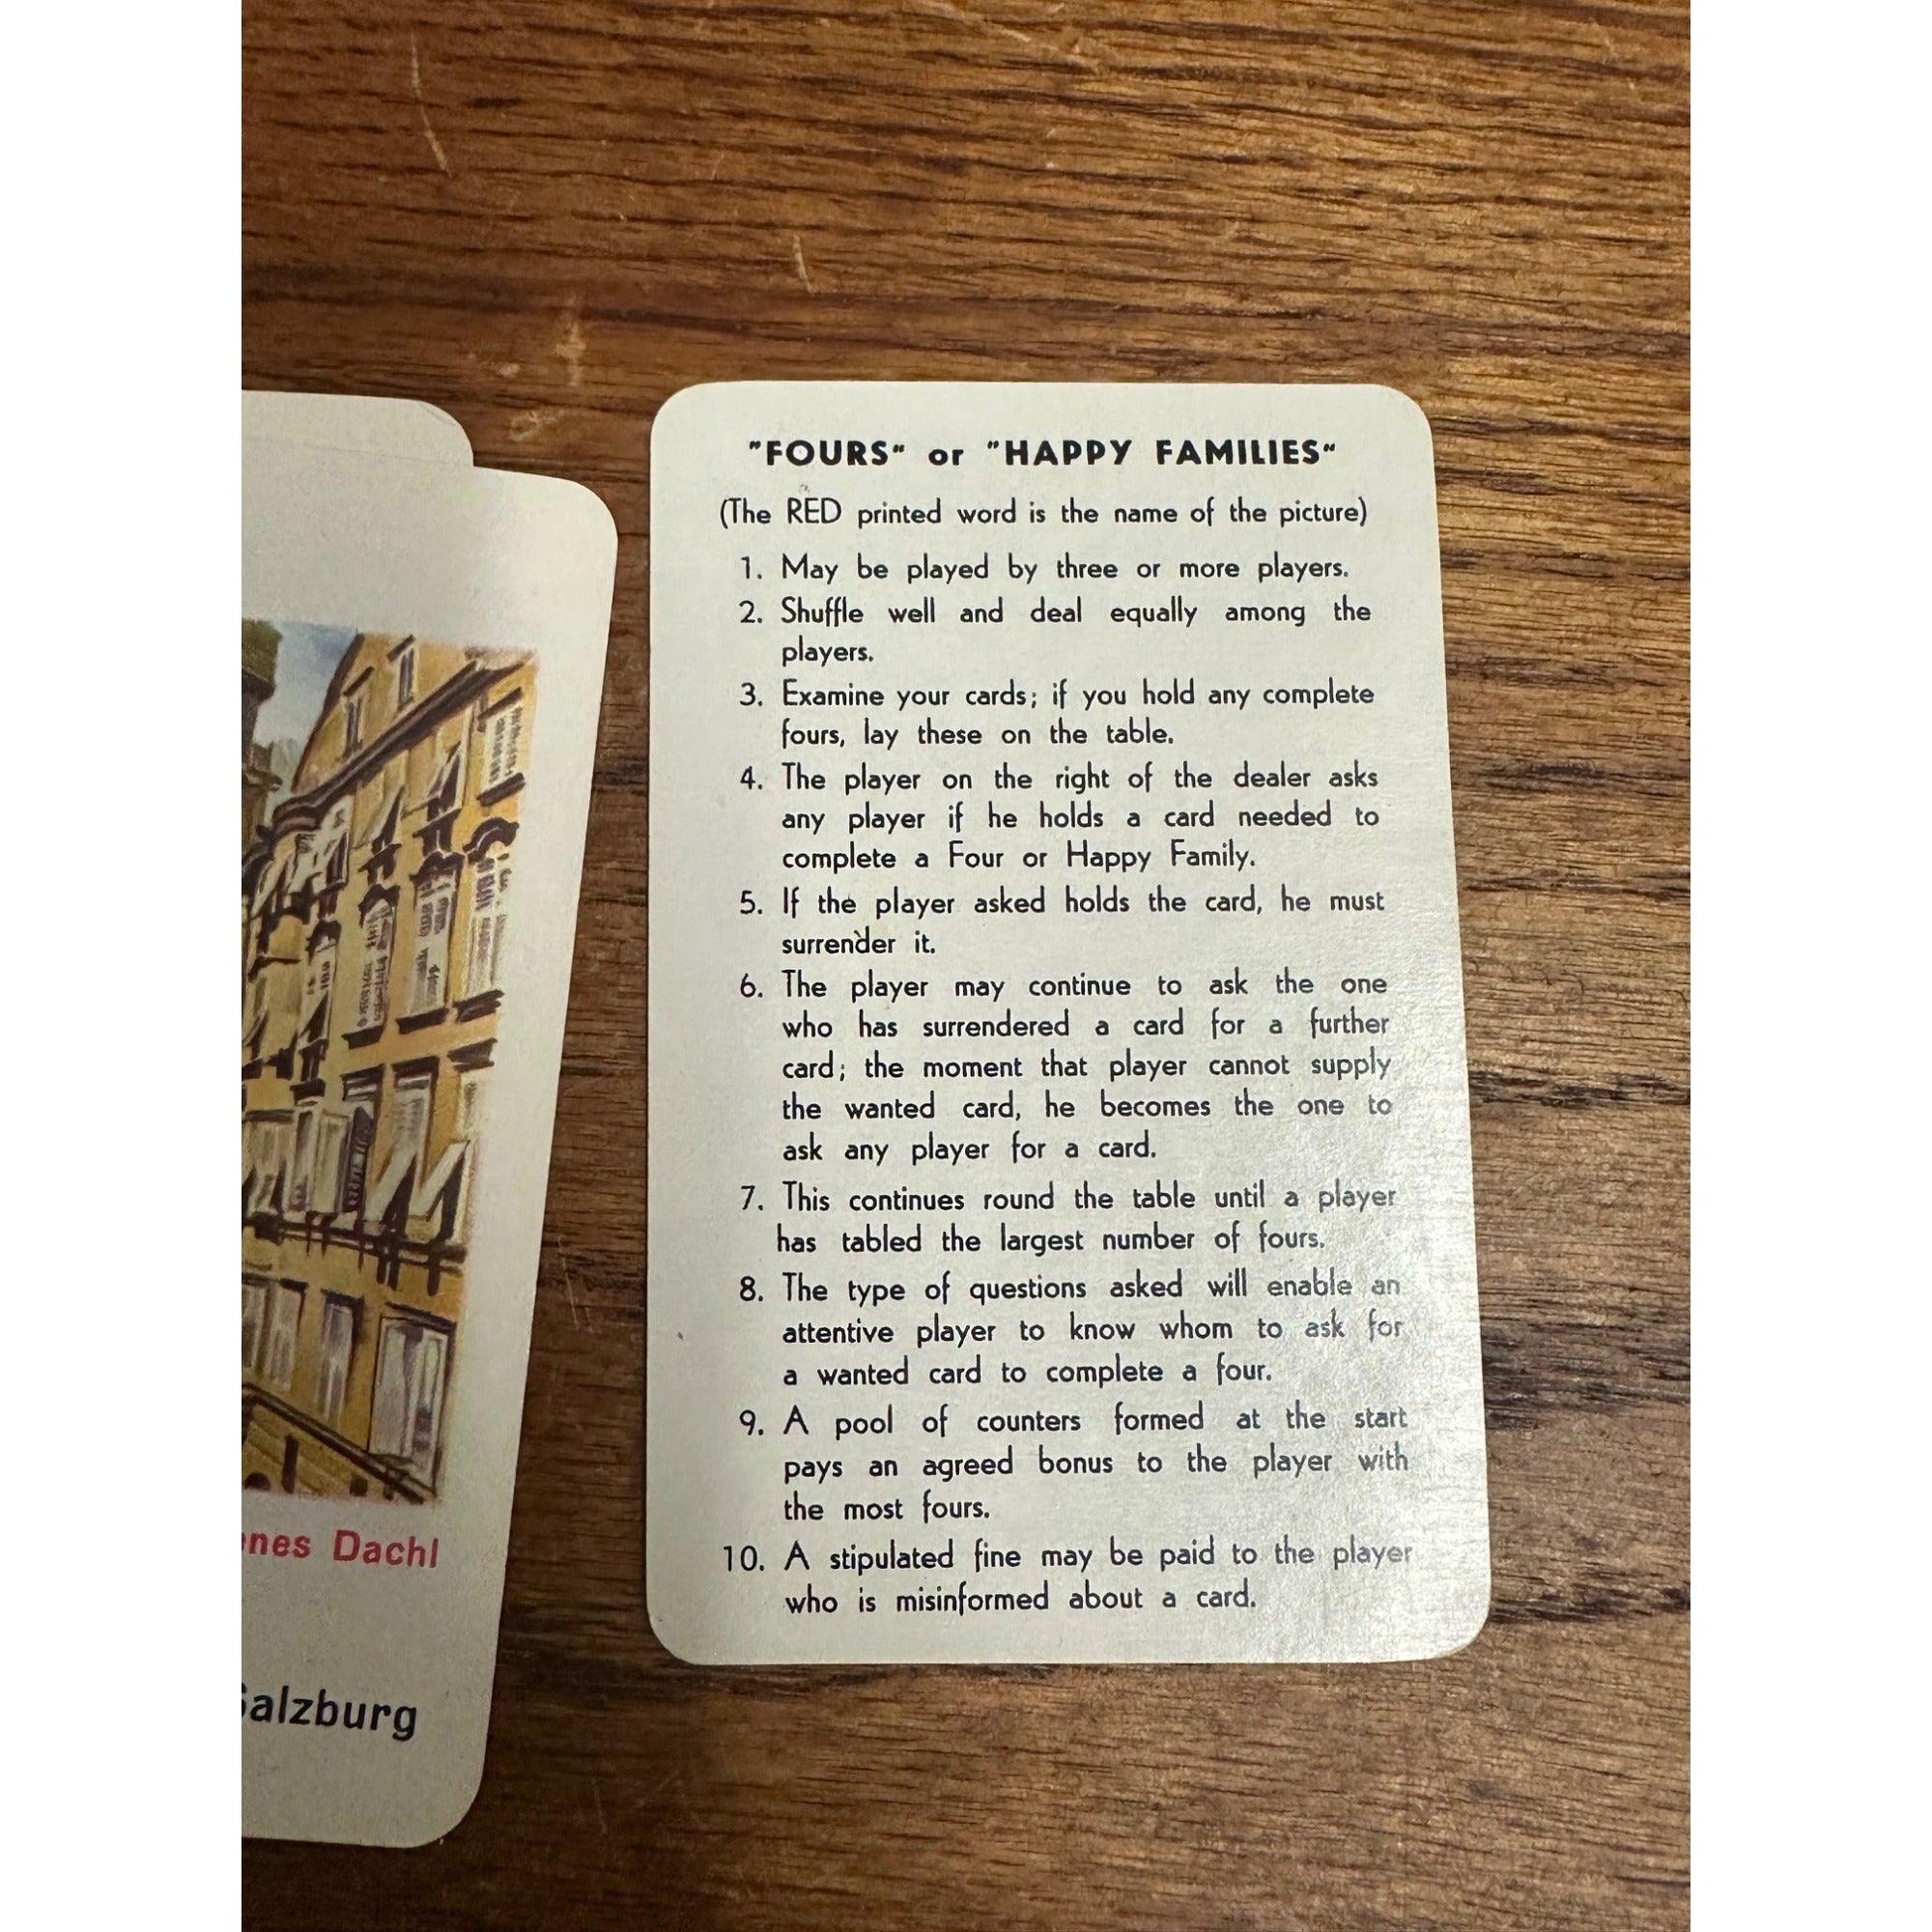 "FOURS" or "HAPPY FAMILIES"
(The RED printed word is the name of the picture)
1. May be played by three or more players.
2. Shuffle well and deal equally among the
players.
3. Examine your cards; if you hold any complete
fours, lay these on the table.
4. The player on the right of the dealer asks
any player if he holds a card needed to
complete a Four or Happy Family.
5. If the player asked holds the card, he must
surrender it.
6. The player may continue to ask the one
who has surrendered a card for a further
card; the moment that player cannot supply
the wanted card, he becomes the one to
ask any player for a card.
7. This continues round the table until a player
has tabled the largest number of fours.
8. The type of questions asked will enable an
attentive player to know whom to ask for
a wanted card to complete a four.
9. A pool of counters formed at the start
pays an agreed bonus to the player with
the most fours.
10. A stipulated fine may be paid to the player
who is misinformed about a card.
nes Dachl
Salzburg